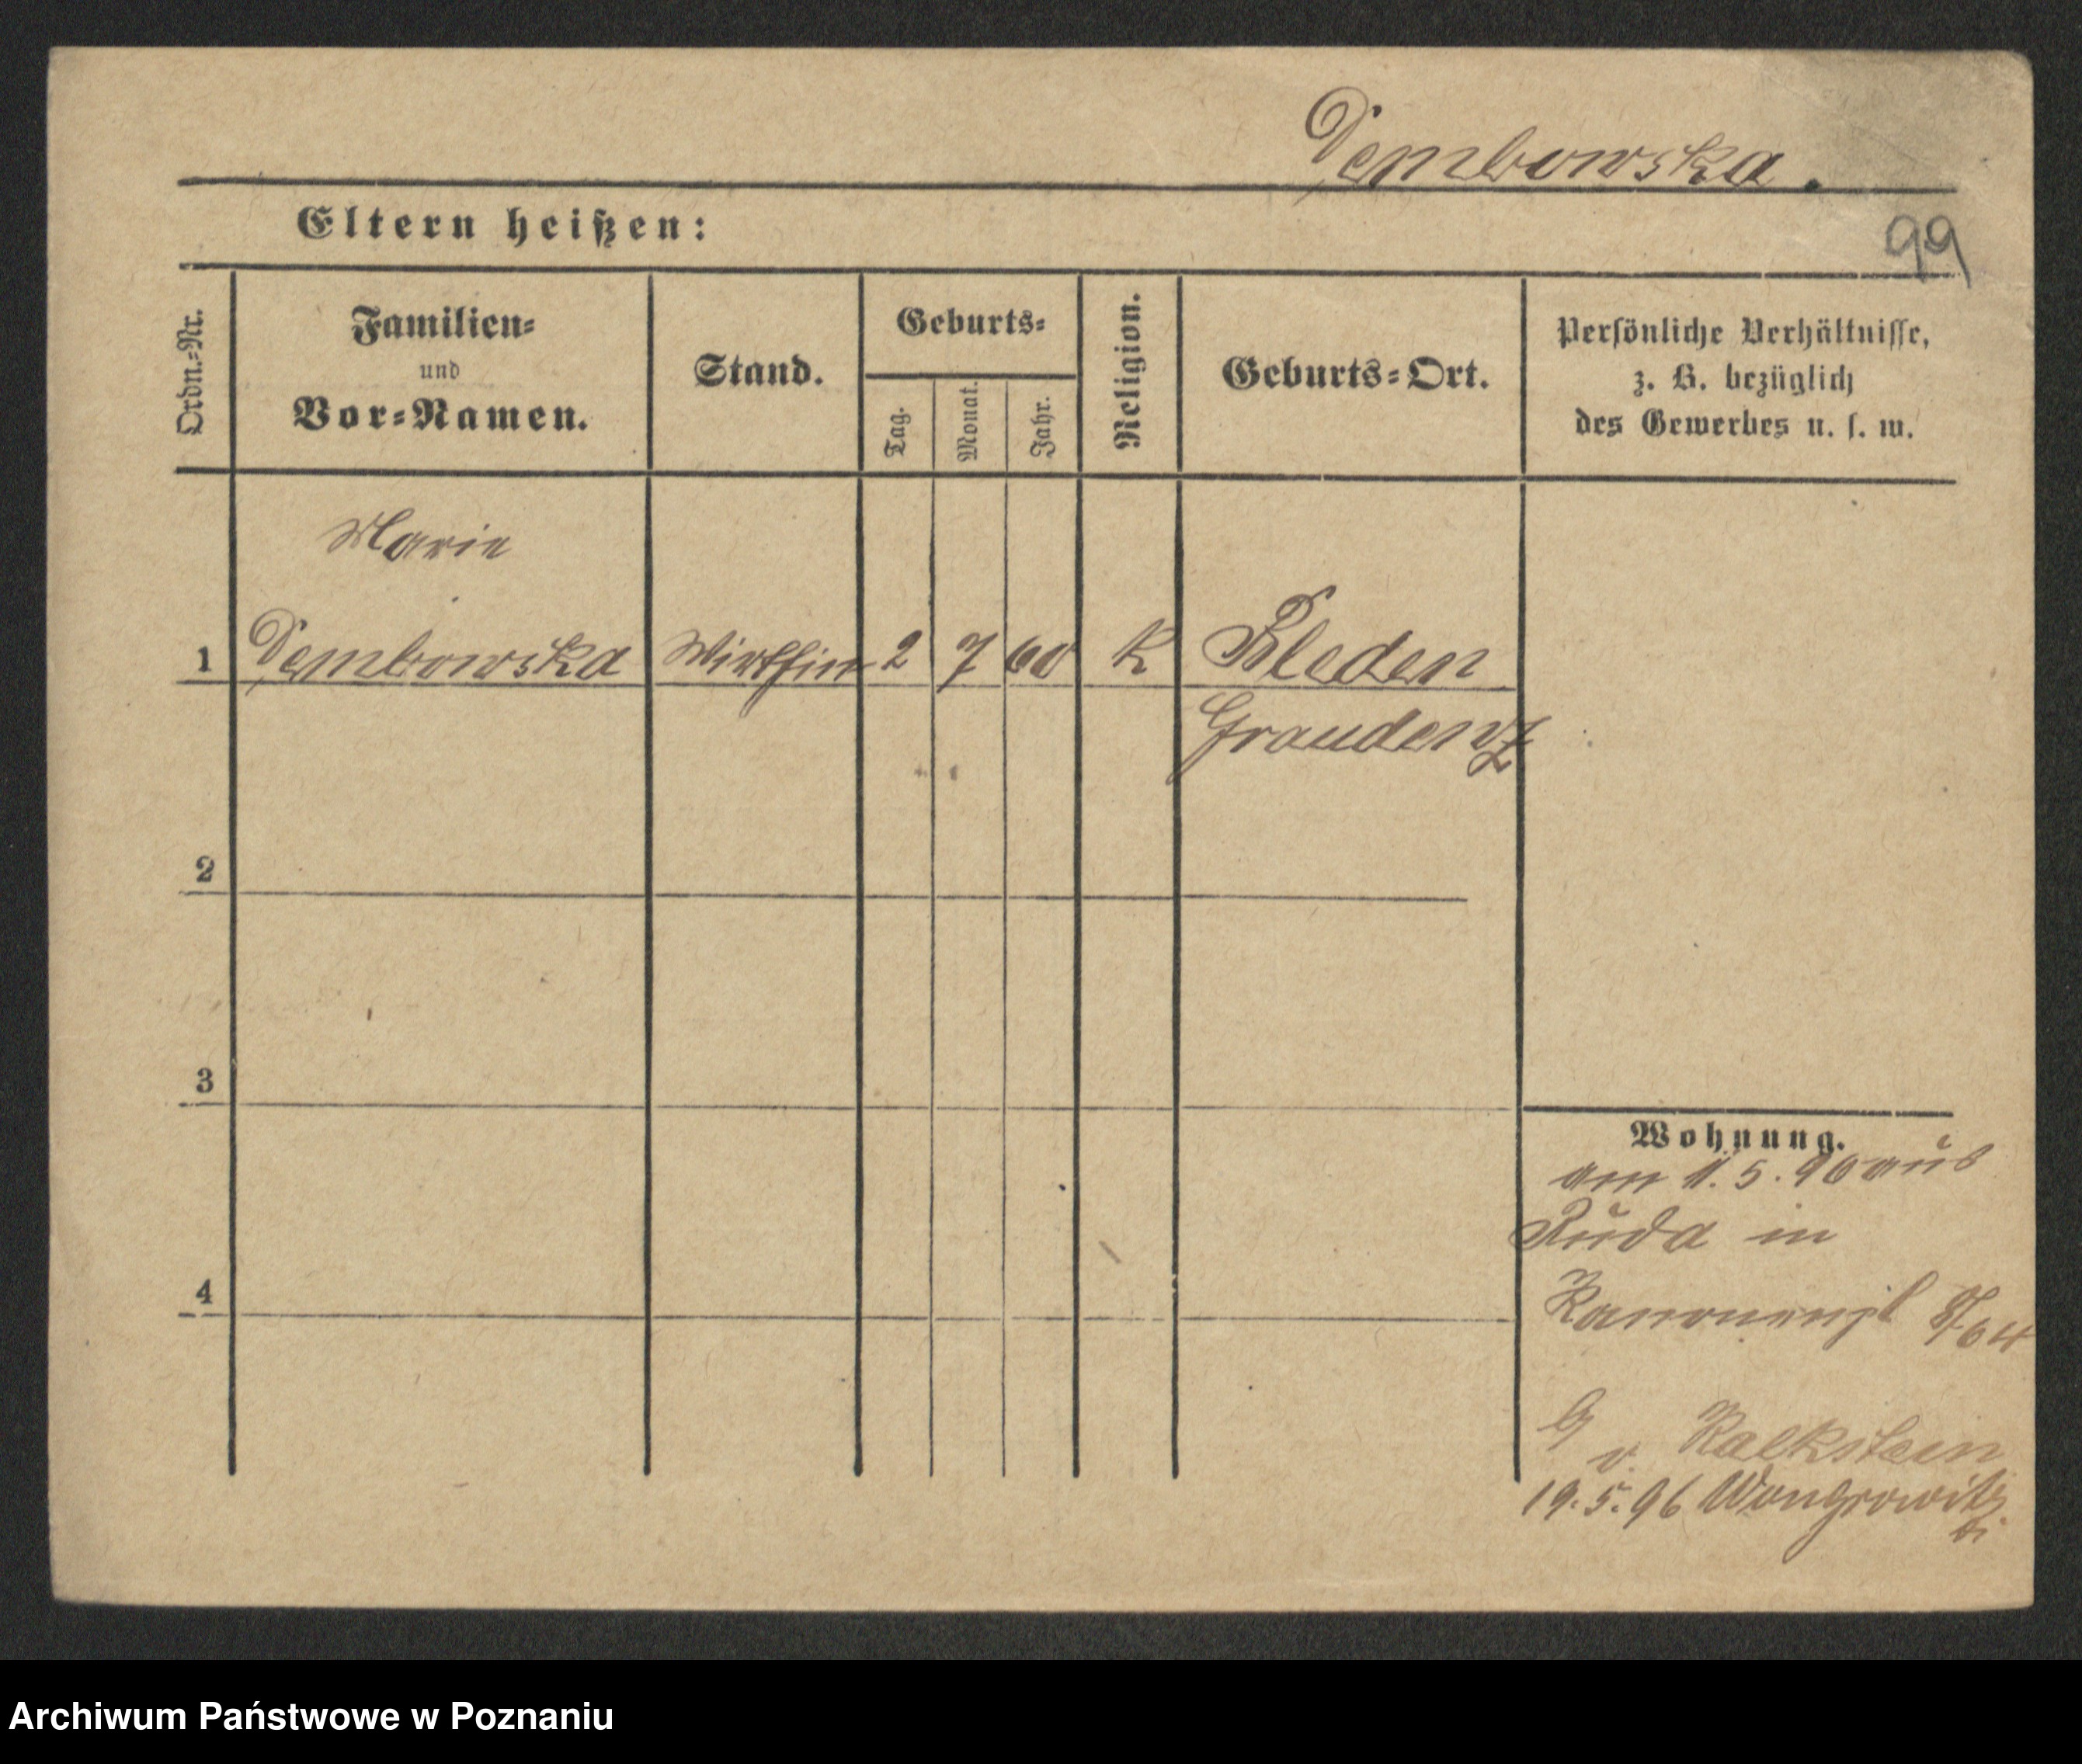 Dembowska.
Eltern heißen:
99
Ordn.=Nr.
Familien=
und
Vor=Namen.
Stand.
Geburts=
Tag.
Monat.
Jahr.
Religion.
Geburts=Ort.
Persönliche Verhältnisse,
z. B. bezüglich
des Gewerbes u. s. w.
Marie
1 Dembowska Wirthin 2 7 60 K Bleden
Graudenz
2
3
4
Wohnung.
am 1.5.96 aus
Ruda in
8/64
b
v. Kalkstein
19.5.96 Wongrowitz
Archiwum Państwowe w Poznaniu